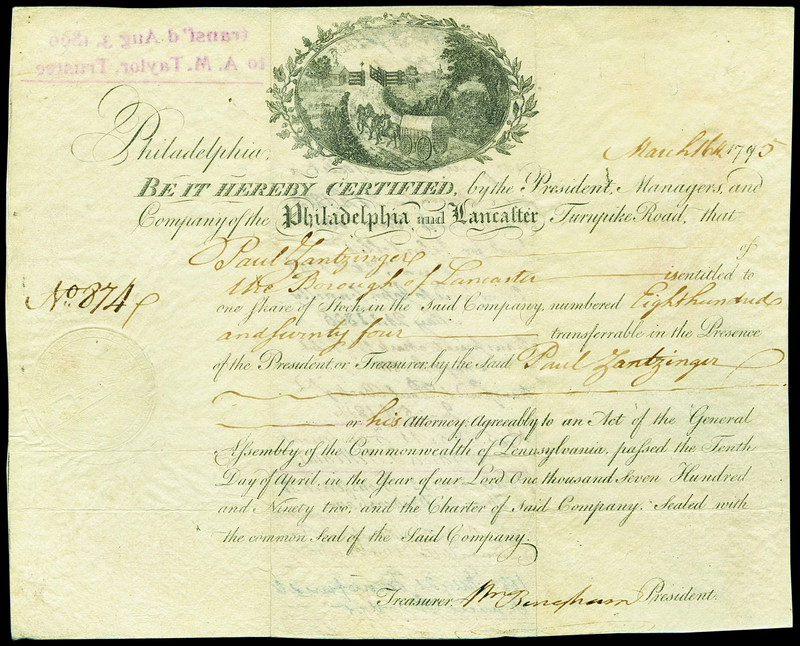 transf'd Aug 3, 1890
to A. M. Taylor, Trustee
Philadelphia,
March 16th 1795
BE IT HEREBY CERTIFIED, by the President, Managers, and
Company of the Philadelphia and Lancaster Turnpike Road, that
Paul Zantzinger of
the Borough of Lancaster is entitled to
No. 874
one share of Stock in the Said Company, numbered Eight hundred
and seventy four transferrable in the Presence
of the President or Treasurer, by the Said Paul Zantzinger
or his Attorney, Agreeably to an Act of the General
Assembly of the Commonwealth of Pennsylvania, passed the Tenth
Day of April, in the Year of our Lord One thousand Seven Hundred
and Ninety two, and the Charter of Said Company. Sealed with
the common Seal of the Said Company.
Treasurer. Wm Bingham President.